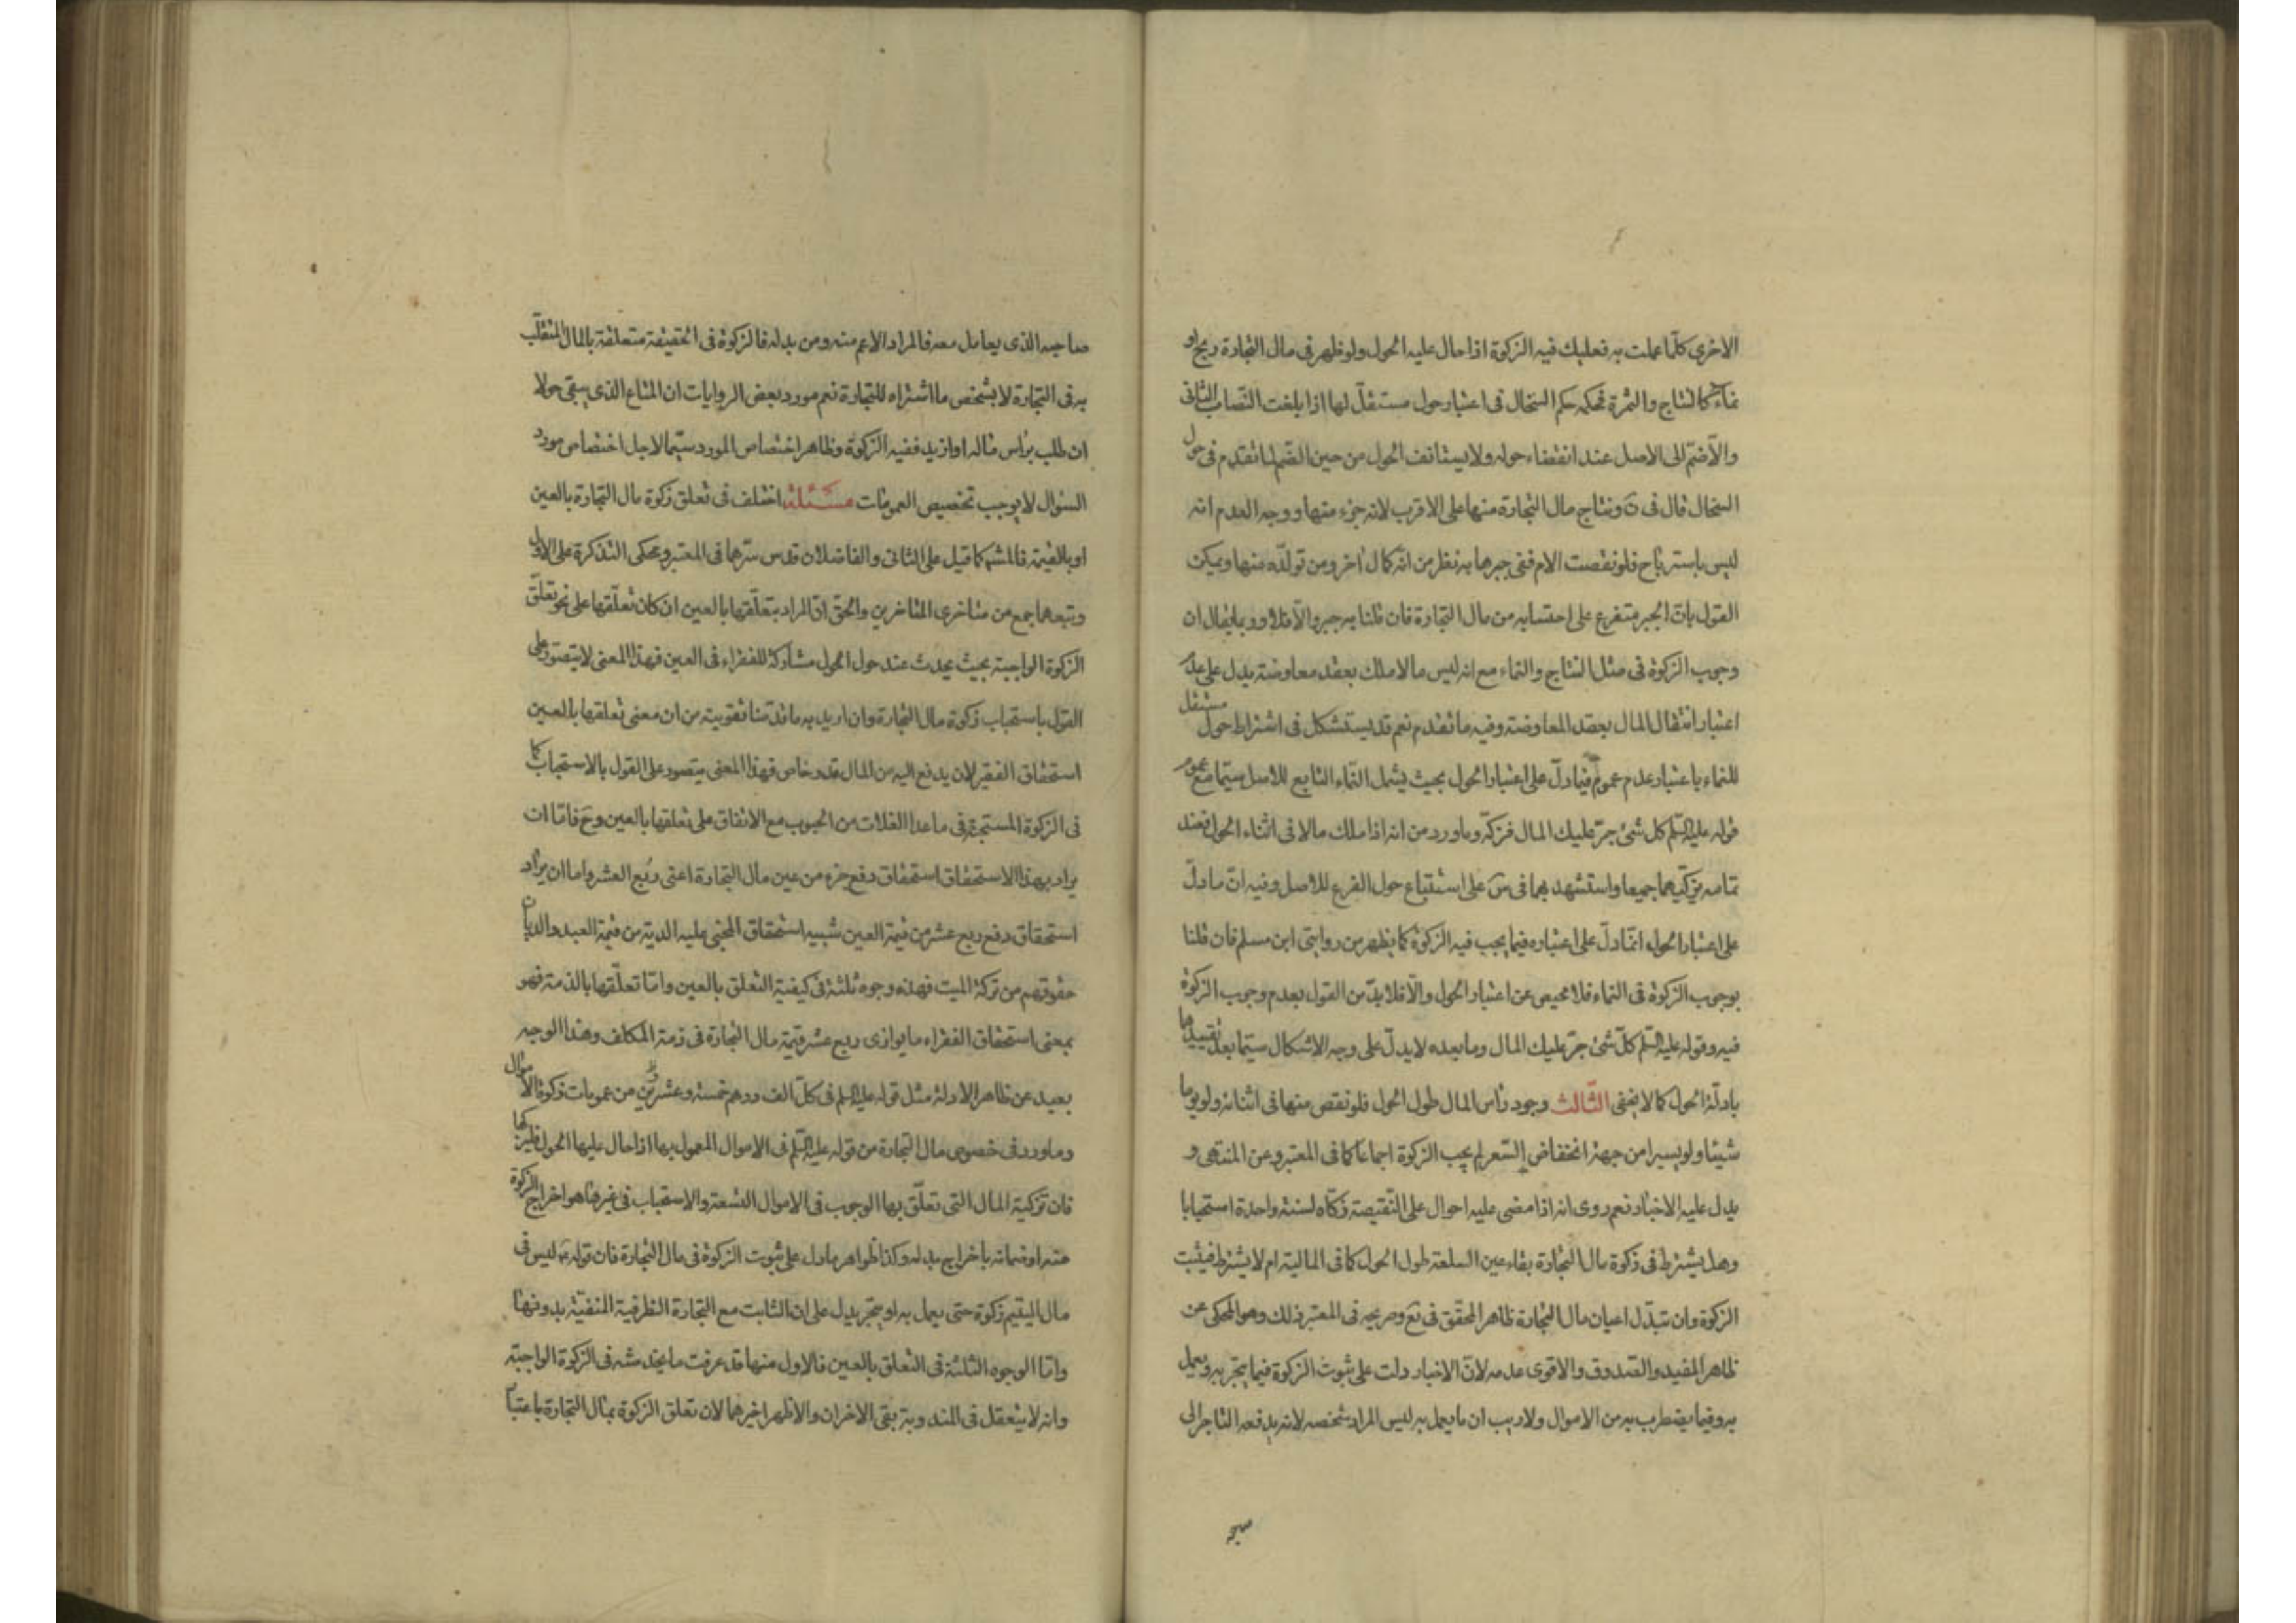 الاخرى كلّما عملت به فعليك فيه الزكوة اذا حال عليه الحول ولو ظهر فى مال التجارة ربح او
نماء كالنتاج والثمرة فحكمه حكم السخال فى اعتبار حول مستقلّ لها اذا بلغت النّصاب الثانى
والّا ضمّ الى الاصل عند انقضاء حوله ولا يستانف الحول من حين الضّم لما تقدم فى حول
السخال قال فى ن ونتاج مال التجارة منها على الاقرب لانه جزء منها ووجه العدم انه
ليس باسترباح فلو نقصت الام ففى جبرها به نظر من انّه كمال اخر ومن تولّده منها ويمكن
القول بانّ الجبر متفرع على احتسابه من مال التجارة فان قلنا به جبر والّا فلا وربما يقال ان
وجوب الزكوة فى مثل النتاج والنماء مع انه ليس مالا ملك بعقد معاوضة يدل على عدم
اعتبار انتقال المال بعقد المعاوضة وفيه ما تقدم نعم قد يستشكل فى اشتراط حول مستقل
للنماء باعتبار عدم عموم فيما دلّ على اعتبار الحول بحيث يشمل النّماء التابع للاصل سيّما مع عموم
قوله عليه السّلم كل شئ جرّ عليك المال فزكّه وما ورد من انه اذا ملك مالا فى اثناء الحول فعند
تمامه يزكّيهما جميعا واستشهد بهما فى س على استتباع حول الفرع للاصل وفيه انّ ما دلّ
على اعتبار الحول انّما دلّ على اعتباره فيما يجب فيه الزكوة كما يظهر من روايتى ابن مسلم فان قلنا
بوجوب الزكوة فى النماء فلا محيص عن اعتبار الحول والّا فلا بدّ من القول بعدم وجوب الزكوة
فيه وقوله عليه السّلم كلّ شئ جرّ عليك المال وما بعده لا يدلّ على وجه الاشكال سيّما بعد تقييدها
بادلّة الحول كما لا يخفى الثّالث وجود راس المال طول الحول فلو نقص منها فى اثنائه ولو يوما
شيئا ولو يسيرا من جهة انخفاض السّعر لم يجب الزكوة اجماعا كما فى المعتبر وعن المنتهى و
يدل عليه الاخبار نعم روى انه اذا مضى عليه احوال على النّقيصة زكّاه لسنة واحدة استحبابا
وهل يشترط فى زكوة مال التجارة بقاء عين السلعة طول الحول كما فى المالية ام لا يشترط فيثبت
الزكوة وان تبدّل اعيان مال التجارة ظاهر المحقّق فى يع وصريحه فى المعتبر ذلك وهو المحكى عن
ظاهر المفيد والصّدوق والاقوى عدمه لانّ الاخبار دلت على ثبوت الزكوة فيما يتجّر به ويعمل
به وفيما يضطرب به من الاموال ولا ريب ان ما يعمل به ليس المراد شخصه لانه يدفعه التاجر الى
صاحبه
صاحبه الذى يعامل معه فالمراد الاعم منه ومن بدله فالزكوة فى الحقيقة متعلقة بالمال المتقلّب
به فى التجارة لا بشخص ما اشتراه للتجارة نعم مورد بعض الروايات ان المتاع الذى يبقى حولا
ان طلب براس ماله او ازيد ففيه الزكوة وظاهر اختصاص المورد سيّما لاجل اختصاص مورد
السؤال لا يوجب تخصيص العمومات مسئلة اختلف فى تعلق زكوة مال التجارة بالعين
او بالقيمة فالمشهور كما قيل على الثانى والفاضلان قدس سرّهما فى المعتبر ومحكى التذكرة على الاول
وتبعهما جمع من متاخرى المتاخرين والحق انّ المراد بتعلّقها بالعين ان كان تعلّقها على نحو تعلّق
الزكوة الواجبة بحيث يحدث عند حول الحول مشاركة للفقراء فى العين فهذا المعنى لا يتصور على
القول باستحباب زكوة مال التجارة وان اريد به ما قدّمنا تقويته من ان معنى تعلقها بالعين
استحقاق الفقير لان يدفع اليه من المال قدر خاص فهذا المعنى يتصور على القول بالاستحباب كما
فى الزكوة المستحبة فى ما عدا الغلات من الحبوب مع الاتفاق على تعلقها بالعين وح فامّا ان
يراد بهذا الاستحقاق استحقاق دفع جزء من عين مال التجارة اعنى ربع العشر واما ان يراد
استحقاق دفع ربع عشر من قيمة العين شبيه استحقاق المجنى عليه الدية من قيمة العبد والديان
حقوقهم من تركة الميت فهذه وجوه ثلثة فى كيفية التعلق بالعين وامّا تعلّقها بالذمة فهو
بمعنى استحقاق الفقراء ما يوازى ربع عشر قيمة مال التجارة فى ذمة المكلف وهذا الوجه
بعيد عن ظاهر الادلة مثل قوله عليه السلم فى كلّ الف درهم خمسة وعشرين من عمومات زكوة الاموال
وما ورد فى خصوص مال التجارة من قوله عليه السّلم فى الاموال المعمول بها اذا حال عليها الحول فليزكّها
فان تزكية المال التى تعلّق بها الوجوب فى الاموال التسعة والاستحباب فى غيرها هو اخراج الزكوة
منه او ضمانه باخراج بدله وكذا ظواهر ما دل على ثبوت الزكوة فى مال التجارة فان قوله ع ليس فى
مال اليتيم زكوة حتى يعمل به او يتجّر يدل على ان الثابت مع التجارة الظرفية المنفيّة بدونها
وامّا الوجوه الثلثة فى التعلق بالعين فالاول منها قد عرفت ما يخدشه فى الزكوة الواجبة
وانه لا يتعقل فى المندوبة بقى الاخران والاظهر اخيرهما لان تعلق الزكوة بمال التجارة باعتبار